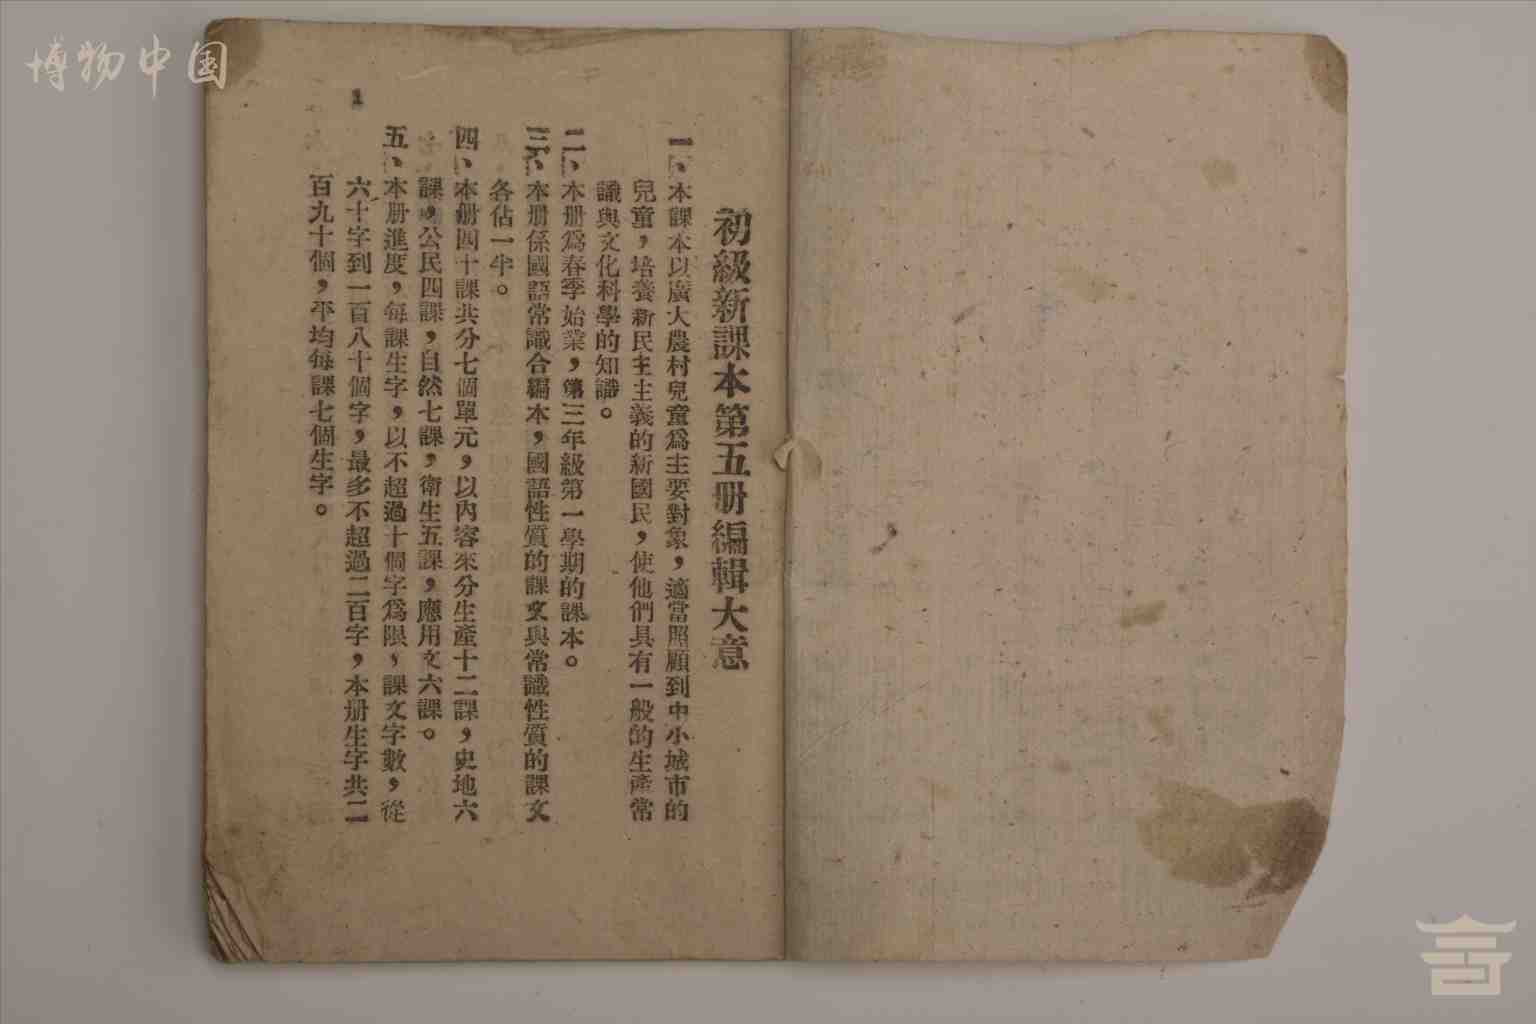 博物中国
初級新課本第五册編輯大意
一、本課本以廣大農村兒童爲主要對象，適當照顧到中小城市的
兒童，培養新民主主義的新國民，使他們具有一般的生產常
識與文化科學的知識。
二、本册爲春季始業，第三年級第一學期的課本。
三、本册係國語常識合編本，國語性質的課文與常識性質的課文
各佔一半。
四、本册四十課共分七個單元，以內容來分生產十二課，史地六
課，公民四課，自然七課，衛生五課，應用文六課。
五、本册進度，每課生字，以不超過十個字爲限，課文字數，從
六十字到一百八十個字，最多不超過二百字，本册生字共二
百九十個，平均每課七個生字。
1